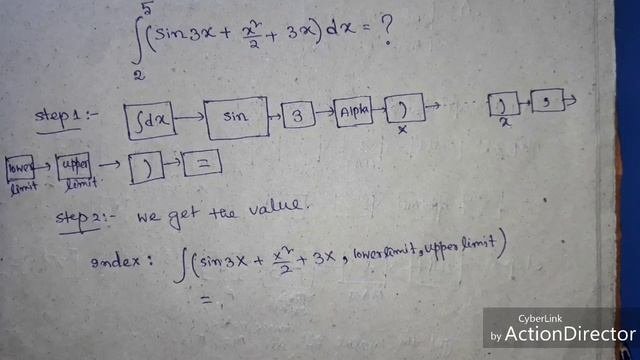 ∫₂⁵ (sin3x + x²/2 + 3x) dx = ?
step 1 :- ∫dx → sin → 3 → Alpha → ) x → ... ) x → , →
lower limit → upper limit → ) → =
step 2 :- we get the value.
index : ∫(sin3x + x²/2 + 3x, lowerlimit, upper limit)
=
CyberLink
by ActionDirector